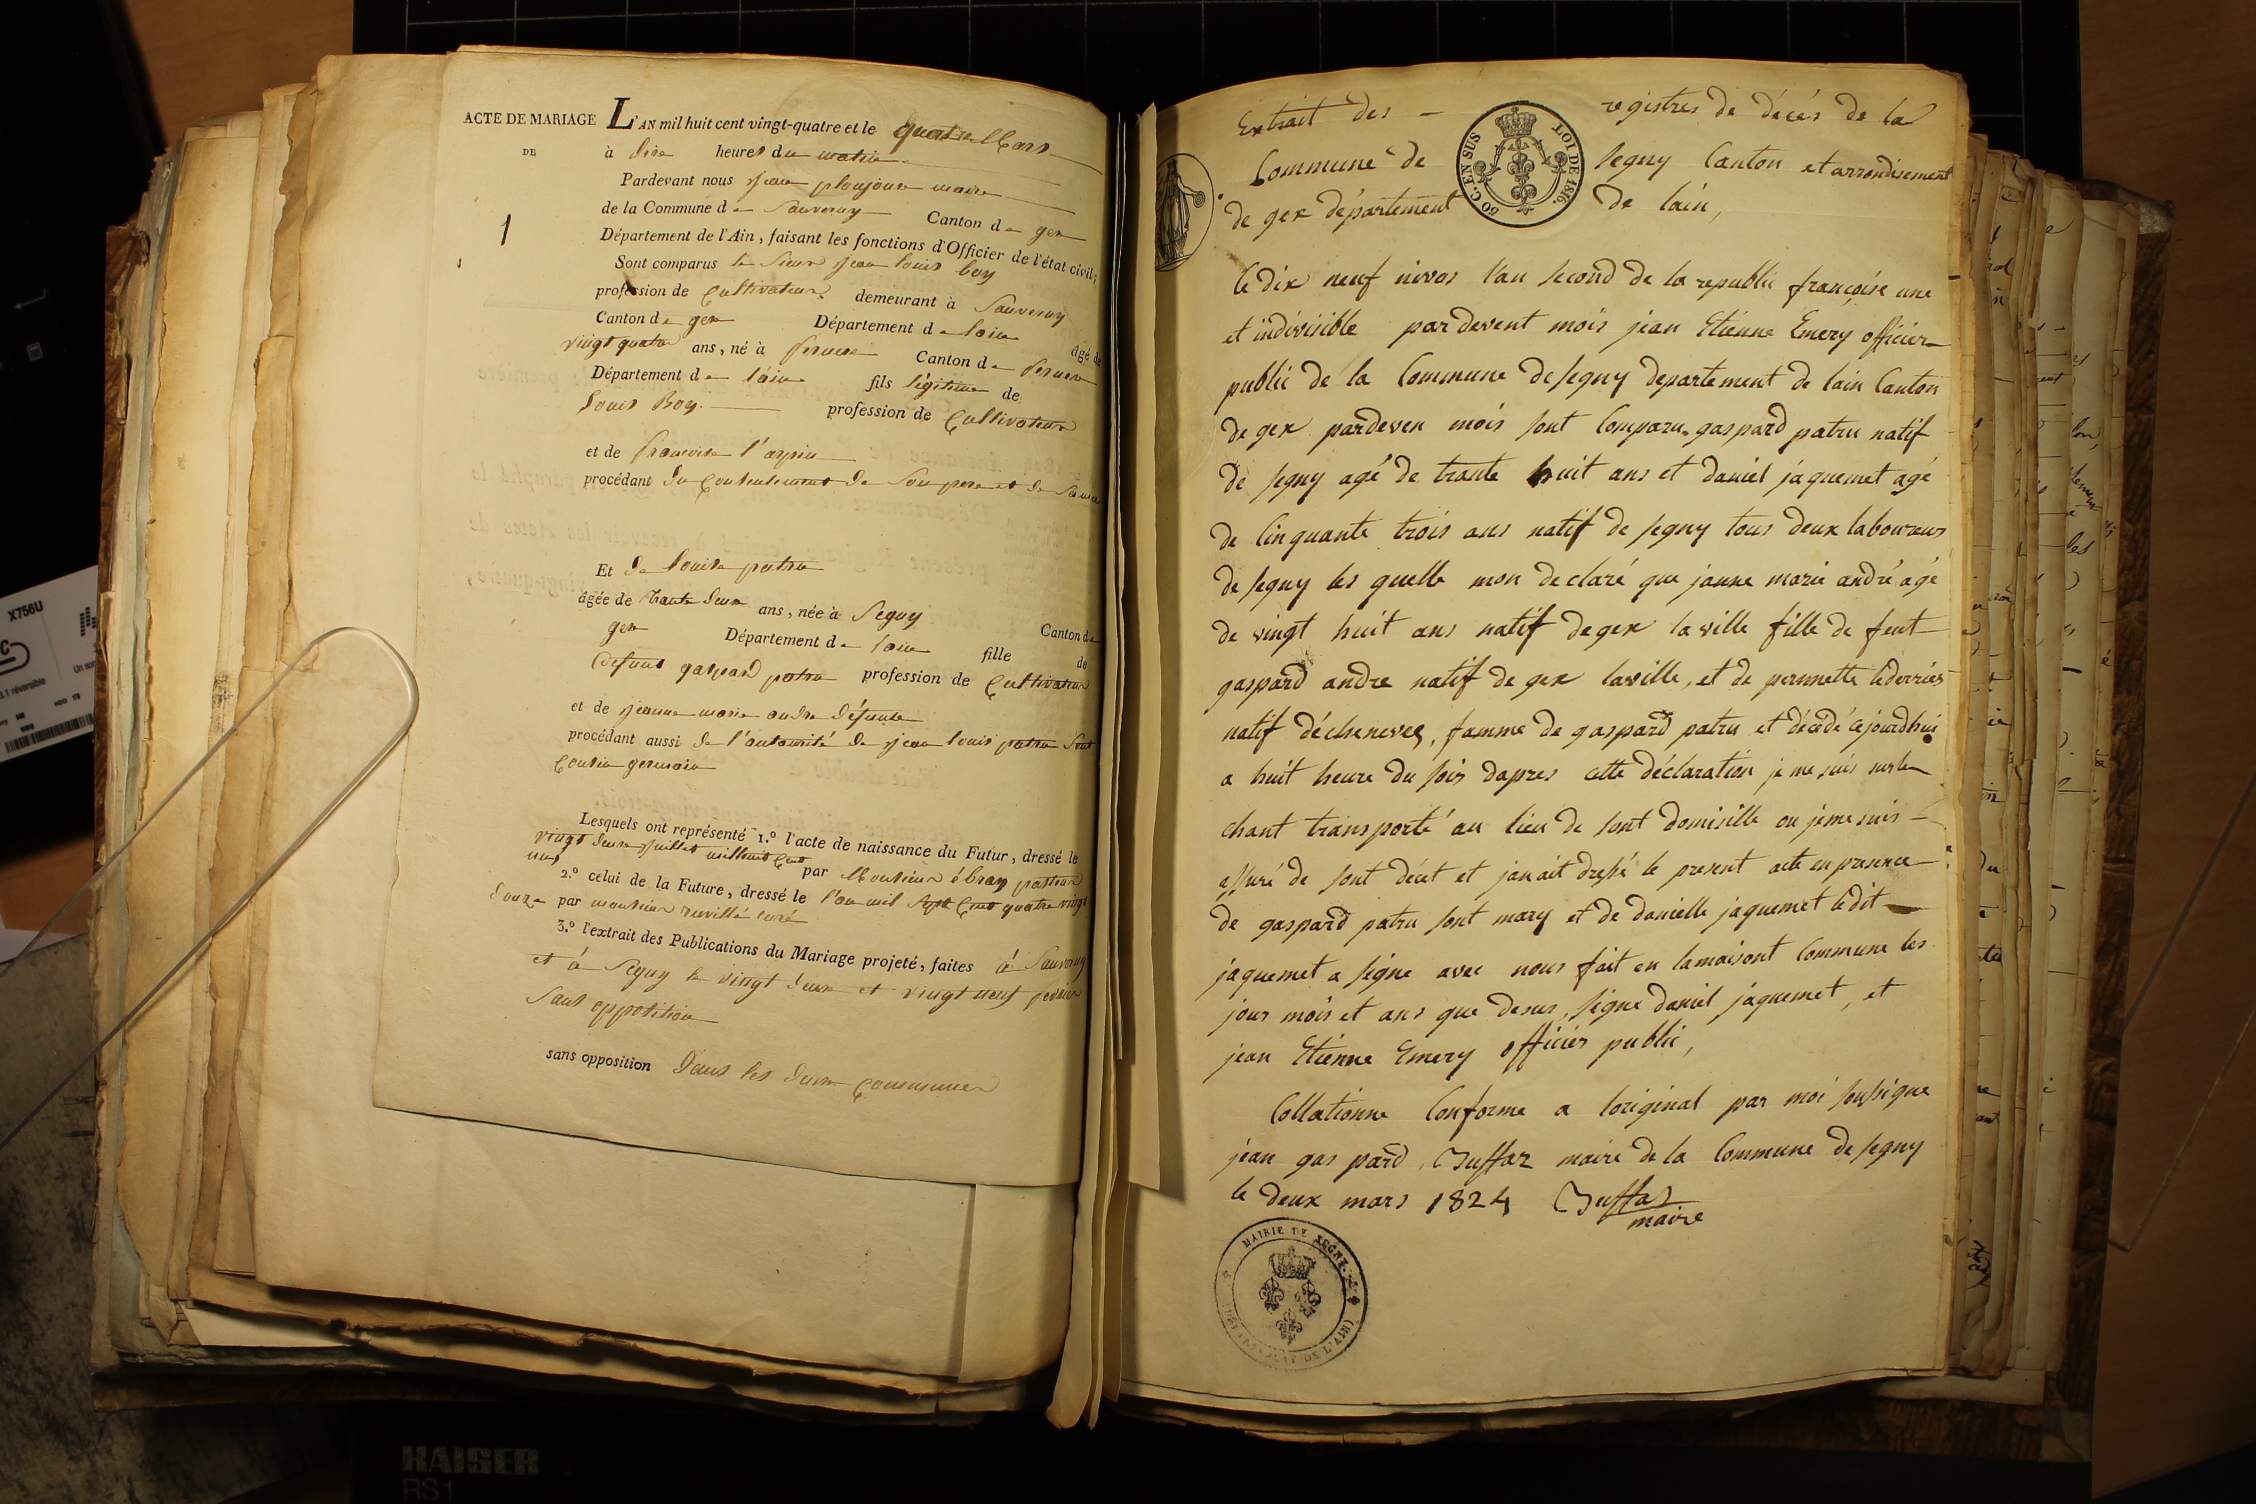 ACTE DE MARIAGE
DE
1
L'AN mil huit cent vingt-quatre et le quatre Mars
à dix heures du matin
Pardevant nous jean plonjoux maire
de la Commune de Sauverny Canton de gex
Département de l'Ain, faisant les fonctions d'Officier de l'état civil;
Sont comparus le Sieur jean louis boy
profession de Cultivateur demeurant à Sauverny
Canton de gex Département de lain âgé de
vingt quatre ans, né à Canton de
Département de lain fils légitime de
Louis Boy. profession de Cultivateur
et de francoise
procédant du Consentement de Son pere et de Sa mere
Et de louise patru
âgée de trante deux ans, née à Segny Canton de
gex Département de lain fille de
defunt gaspard patru profession de Cultivateur
et de jeanne marie andre défunte
procédant aussi de l'autourité de jean louis patru Sont
Cousin germain
Lesquels ont représenté 1.º l'acte de naissance du Futur, dressé le
vingt deux juillet mil huit Cent
un par Monsieur ébray pasteur
2.º celui de la Future, dressé le l'an mil Sept Cent quatre vingt
douze par monsieur curé
3.º l'extrait des Publications du Mariage projeté, faites à Sauverny
et à Segny le vingt deux et vingt neuf fevrier
Sans oppotition
sans opposition dans les deux Communes
Extrait des registres de décés de la
Commune de Segny Canton et arrondisement
de gex département de lain,
50 C. EN SUS
LOI DE 1816.
le dix neuf nivos l'an second de la republic françoise une
et indivisible par devent mois jean Etienne Emery officier
public de la Commune de segny departement de lain Canton
de gex pardeven mois sont Comparu gaspard patru natif
de segny agé de trante huit ans et daniel jaquemet agé
de Cinquante trois ans natif de segny tous deux laboureurs
de segny les quelle mon declaré que janne marie andré agé
de vingt huit ans natif de gex la ville fille de feut
gaspard andre natif de gex laville, et de pernnette
natif déchenevex, famme de gaspard patru et décédé cejourdhui
a huit heure du soir dapres cette déclaration je me suis surle
chant transporté au lieu de sont domisille ou jeme suis
assuré de sont décet et jan ait dressé le present acte en presence
de gaspard patru sont mary et de danielle jaquemet ledit
jaquemet a signe avec nous fait en lamaisont Commune les
jour mois et ans que desus, signe daniel jaquemet, et
jean Etienne Emery officier public,
Collationne Conforme a loriginal par moi soussigne
jean gaspard Buffaz maire de la Commune de segny
le deux mars 1824 Buffaz
maire
MAIRIE DE SEGNY
DE L'AIN
X756U
3.1 réversible
KAISER
RS1